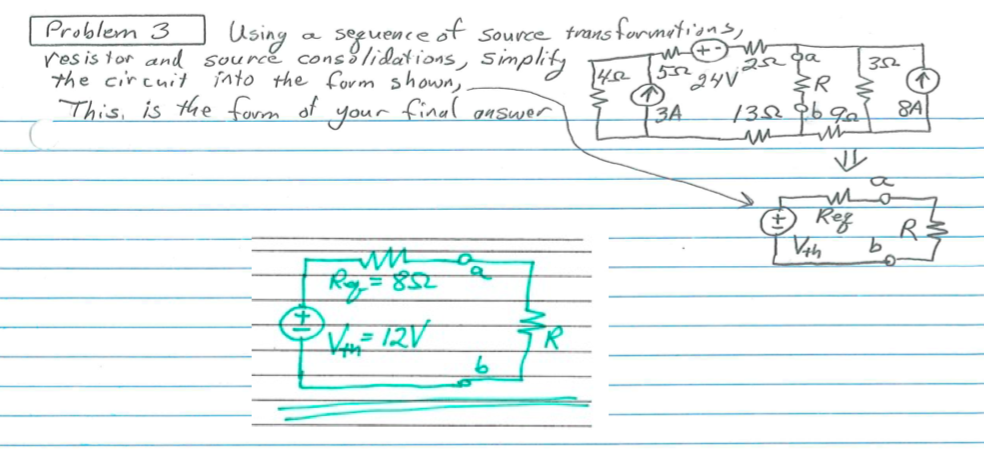 Problem 3 Using a sequence of source transformations,
resistor and source consolidations, simplify
the circuit into the form shown,
This, is the form of your final answer
4Ω 5Ω + - 24V 2Ω a 3Ω
3A R 8A
13Ω b 9Ω
a
+ - Req R
Vth b
Req = 8Ω a
+ - Vth = 12V R
b